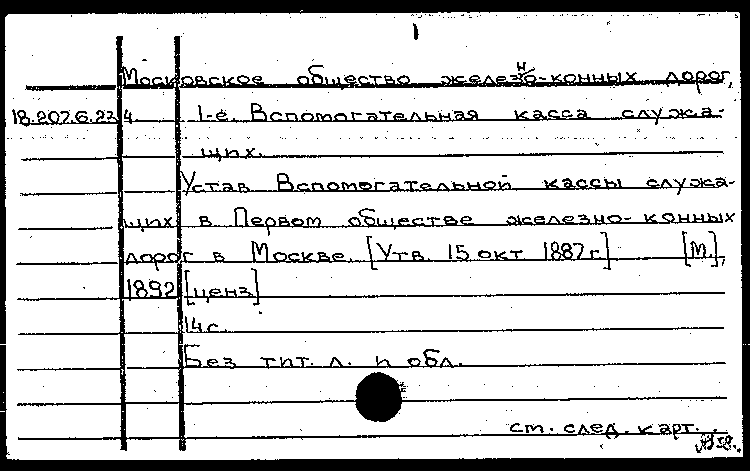 1
Московское общество железно-конных дорог,
18.207.6.234 1-е. Вспомогательная касса служа-
щих.
Устав Вспомогательной кассы служа-
щих в Первом обществе железно-конных
дорог в Москве. [Утв. 15 окт 1887г.] [М.],
1892 [ценз]
14с.
Без тит. л. и обл.
ст. след. карт.